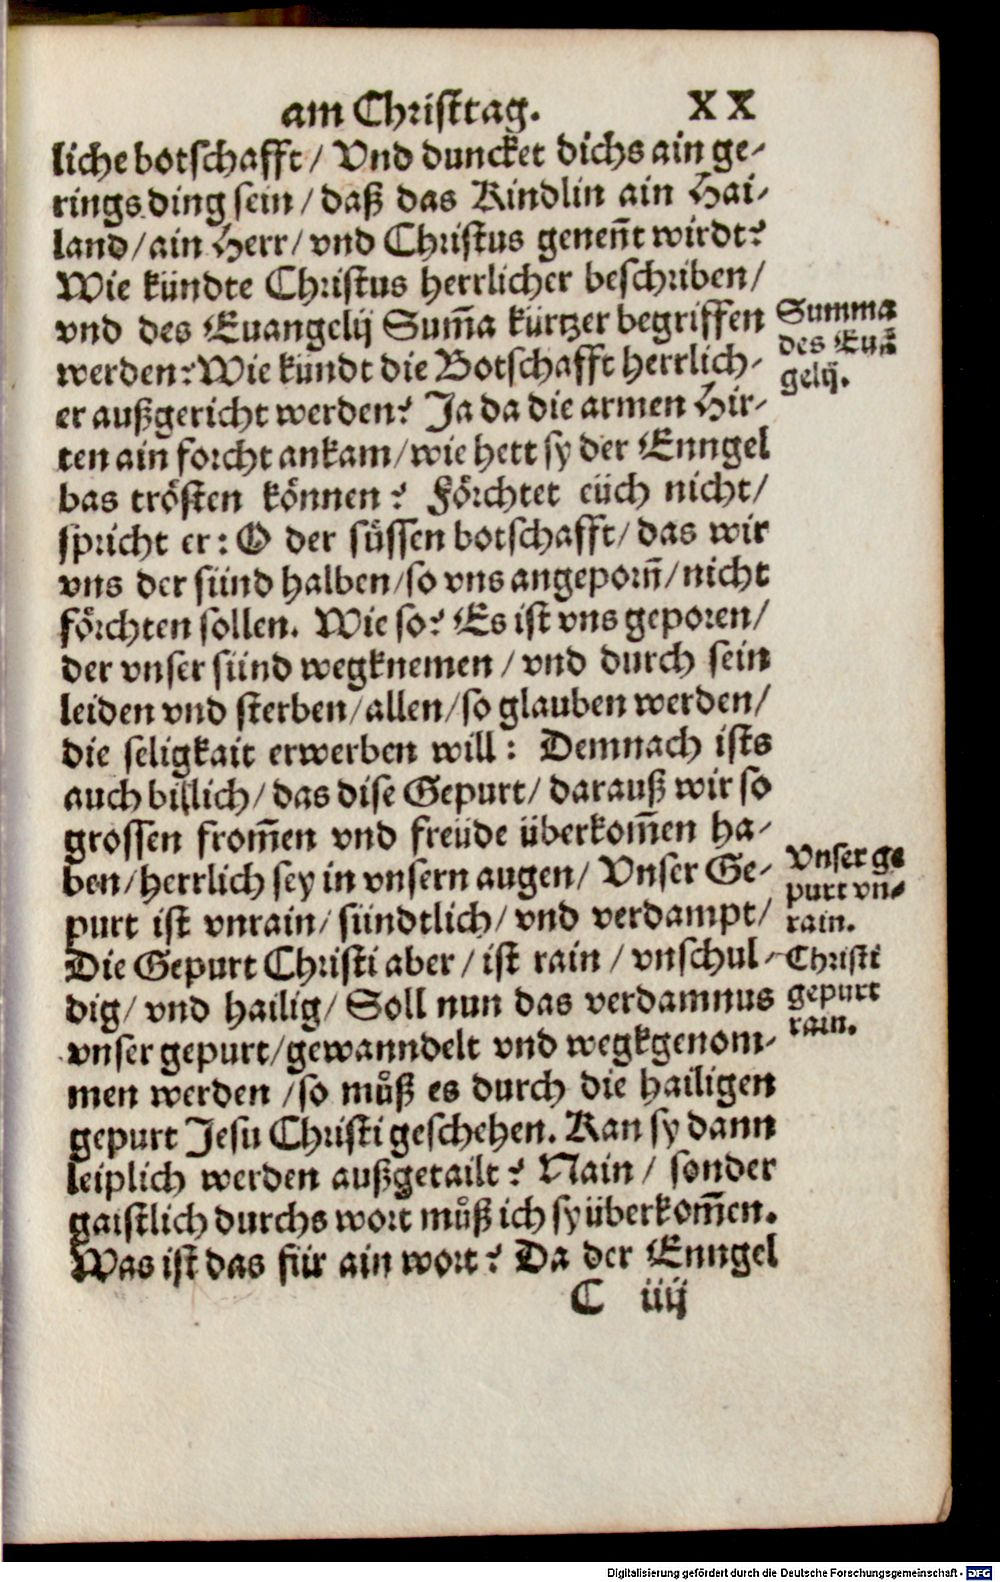 am Christtag. XX
liche botschafft / Vnd duncket dichs ain ge-
rings ding sein / daß das Kindlin ain Hai-
land / ain Herr / vnd Christus genen̄t wirdt?
Wie kündte Christus herrlicher beschriben /
vnd des Euangelij Sum̄a kürtzer begriffen
werden? Wie kündt die Botschafft herrlich-
er außgericht werden? Ja da die armen Hir-
ten ain forcht ankam / wie hett sy der Enngel
bas trösten können? Förchtet eüch nicht /
spricht er: O der süssen botschafft / das wir
vns der sünd halben / so vns angeporn̄ / nicht
förchten sollen. Wie so? Es ist vns geporen /
der vnser sünd wegknemen / vnd durch sein
leiden vnd sterben / allen / so glauben werden /
die seligkait erwerben will: Demnach ists
auch billich / das dise Gepurt / darauß wir so
grossen from̄en vnd freüde überkom̄en ha-
ben / herrlich sey in vnsern augen / Vnser Ge-
purt ist vnrain / sündtlich / vnd verdampt /
Die Gepurt Christi aber / ist rain / vnschul-
dig / vnd hailig / Soll nun das verdamnus
vnser gepurt / gewanndelt vnd wegkgenom-
men werden / so můß es durch die hailigen
gepurt Jesu Christi geschehen. Kan sy dann
leiplich werden außgetailt? Nain / sonder
gaistlich durchs wort můß ich sy überkom̄en.
Was ist das für ain wort? Da der Enngel
C iiij
Summa
des Euā
gelij.
Vnser ge
purt vn-
rain.
Christi
gepurt
rain.
Digitalisierung gefördert durch die Deutsche Forschungsgemeinschaft - DFG